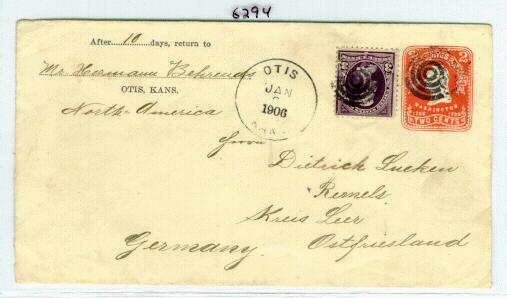 6294
After 10 days, return to
Mr Hermann Behrends
OTIS, KANS.
North-America
OTIS
JAN
1906
KANS.
WASHINGTON
TWO CENTS
Herrn
Dietrich Lucken
Remels
Kreis Leer
Germany. Ostfriesland